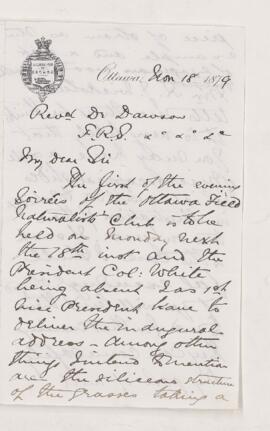 Ottawa, Nov 18 1879
Revd Dr Dawson
F.R.S. &c &c &c
My dear Sir
The first of the evening
Soirees of the Ottawa Field
Naturalists' Club is to be
held on Monday next
the 28th inst and the
President Col: White
being absent I as 1st
Vice President have to
deliver the inaugural
address – Among other
things I intend to mention
are the siliceous structure
of the grasses taking a